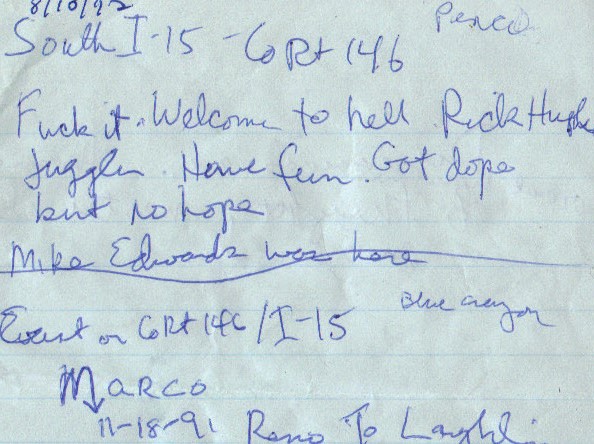 8/10/92
Pencil
South I-15 - Co Rt 146
Fuck it. Welcome to hell Rick Hughe
Juggler. Have fun. Got dope
but no hope
Mike Edwards was here
blue crayon
East on Co Rt 146/I-15
Marco
11-18-91 Reno To Laughli